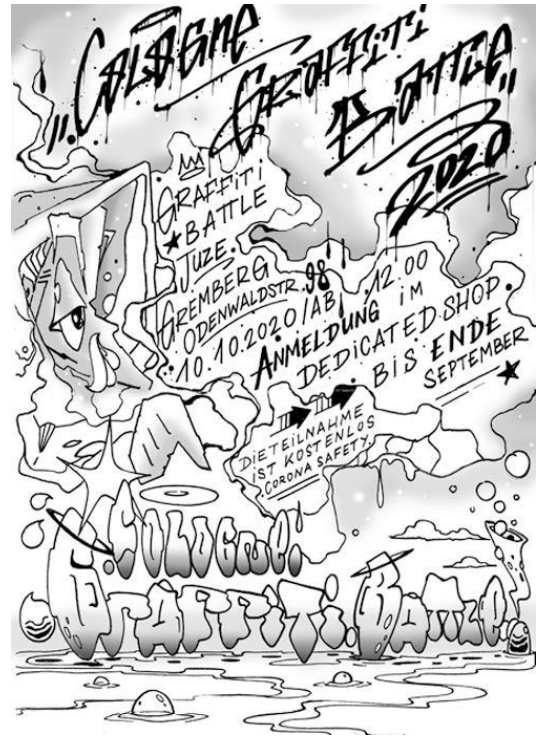 „Cologne
Graffiti
Battle“
2020
GRAFFiTi
BATTLE
JUZE.
GREMBERG
ODENWALDSTR. 98
10.10.2020/AB 12 00
ANMELDUNG iM
DEDiCATED SHOP.
BiS ENDE
SEPTEMBER
DiE TEiLNAHME
iST KOSTENLOS
.CORONA SAFETY.
.COLOGNE:
GRAFFiTi.BATTLE.